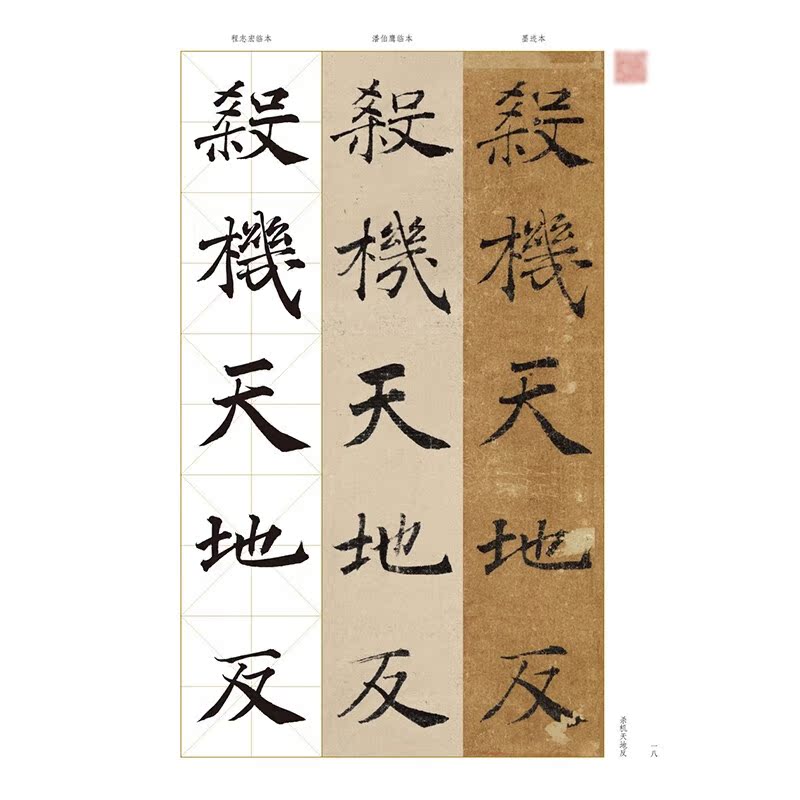 程志宏临本 潘伯鹰临本 墨迹本
殺 殺 殺
機 機 機
天 天 天
地 地 地
反 反 反
杀机天地反
一八